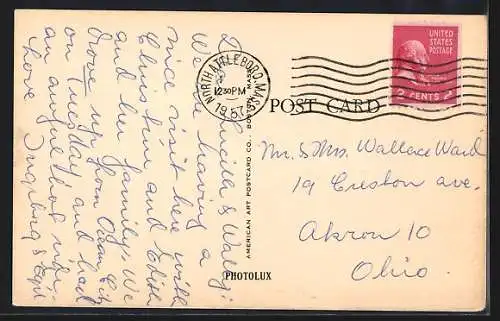 Dear Lucille & Wally:
We are having a
nice visit here with
Christine and Edith
and her family. We
drove up from Ocean City
on Tuesday and had
an awful hot ride.
Love Ingeborg &
NORTH ATTLEBORO, MASS.
12 30 PM
1957
UNITED STATES
POSTAGE
2 CENTS 2
POST CARD
Mr. & Mrs. Wallace Ward
19 Creston ave.
Akron 10
Ohio.
AMERICAN ART POSTCARD CO., BOSTON, MASS.
PHOTOLUX